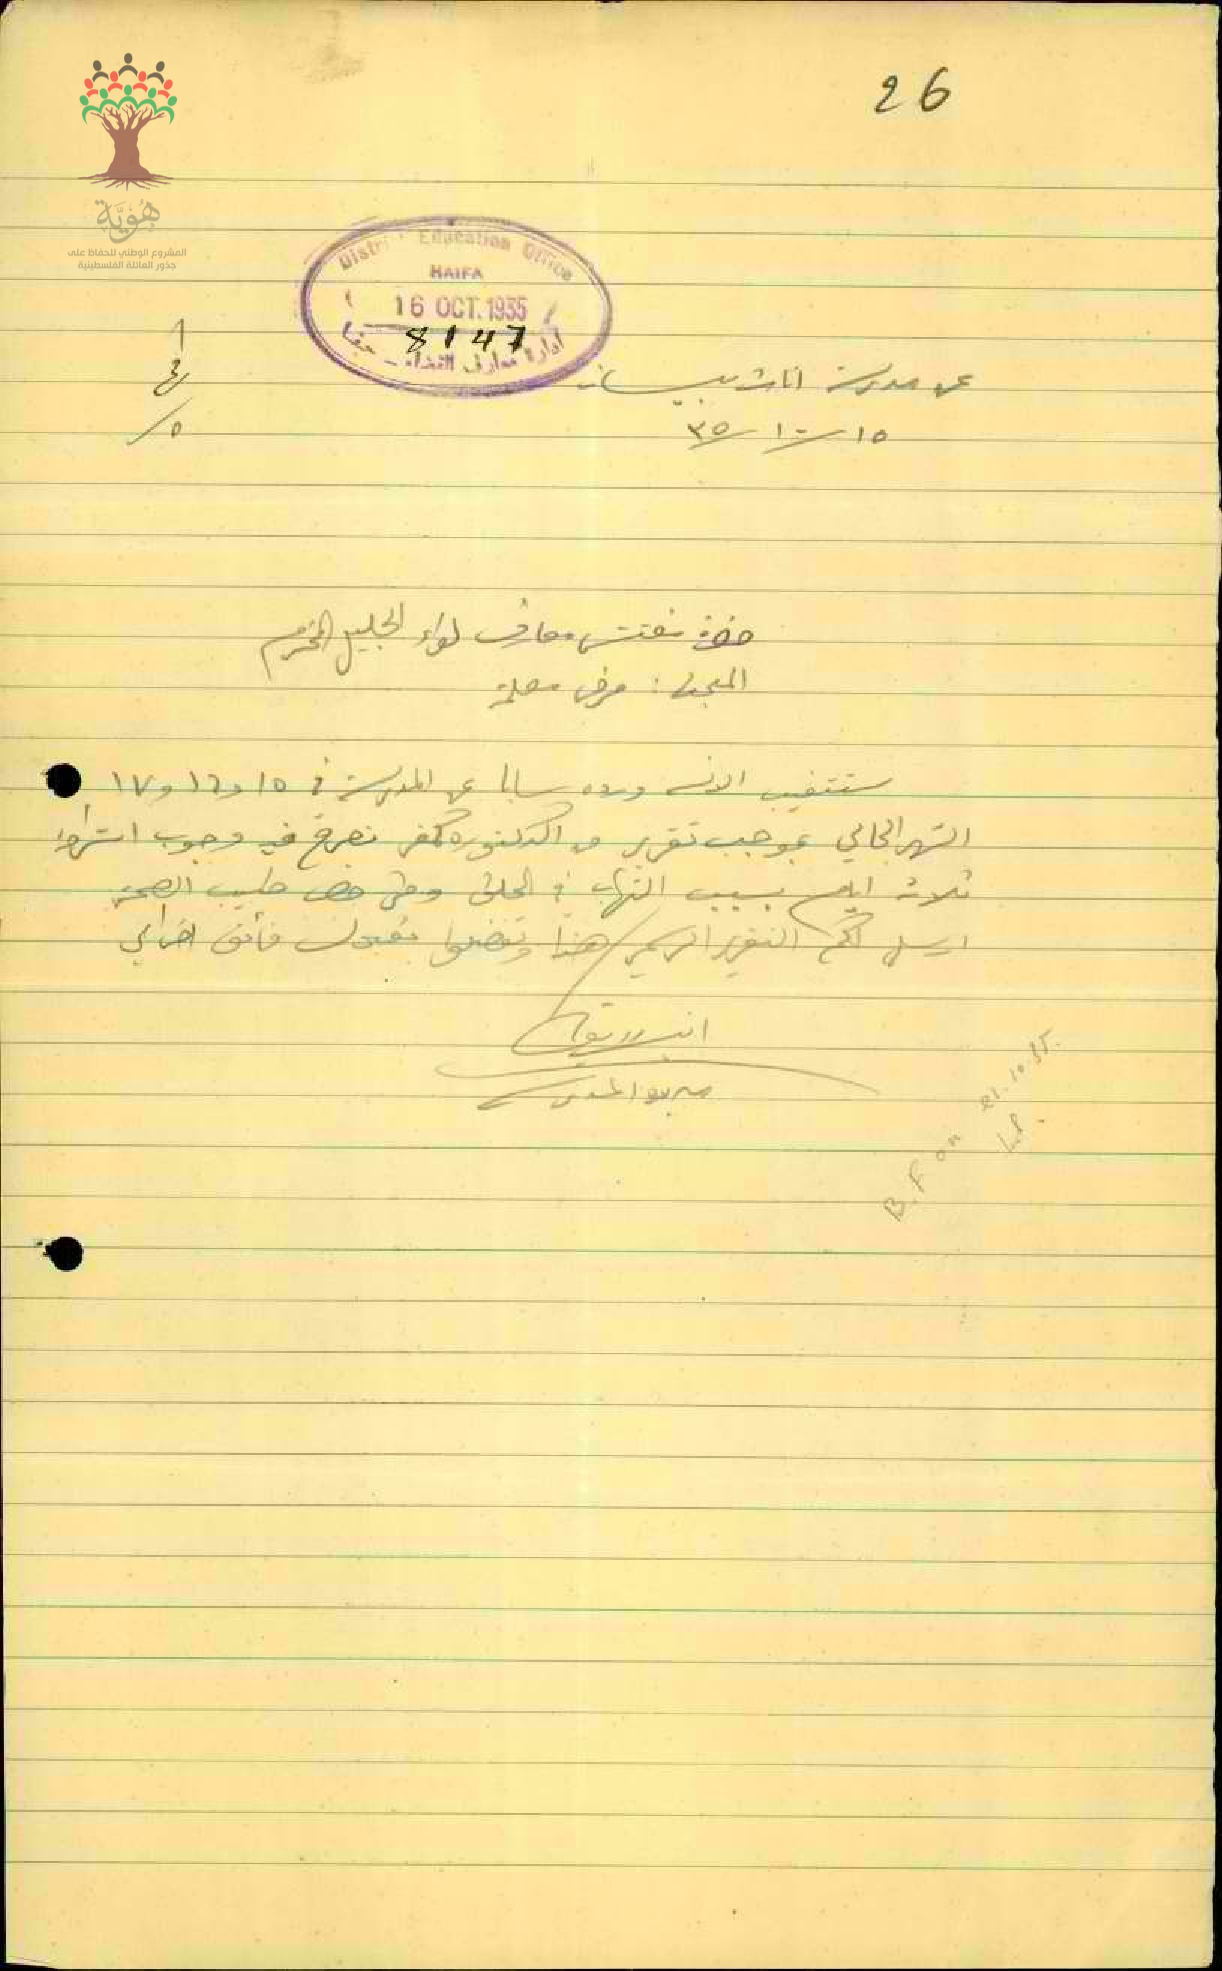 26
هُوِيَّة
المشروع الوطني للحفاظ على
جذور العائلة الفلسطينية
District Education Office
HAIFA
16 OCT. 1935
8147
ادارة معارف القضاء - حيفا
عن مدرسة اناث بيسان
١٥ / ١٠ / ٣٥
حضرة مفتش معارف لواء الجليل المحترم
المبحث : مرض معلمة
ستتغيب الانسه ورده سابا عن المدرسة في ١٥ و ١٦ و ١٧
الشهر الحالي بموجب تقرير من الدكتور يصرح فيه وجوب
ثلاثة ايام بسبب التهاب في الحلق طبيب الصحة
ارسل لكم التقرير الرسمي هذا وتفضلوا بقبول فائق احترامي
مديرة المدرسة
B.F on 21.10.35.